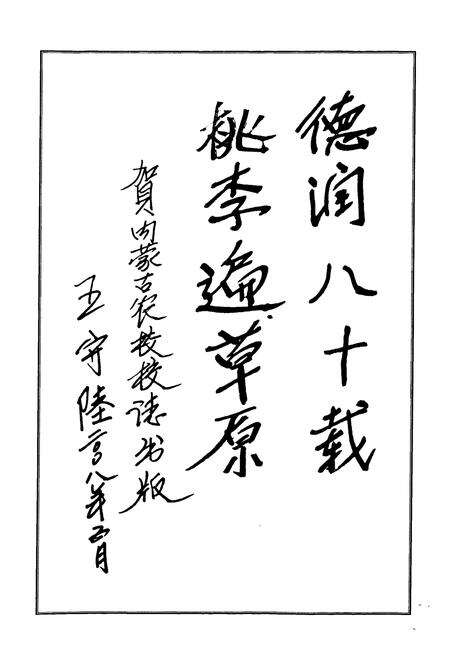 德润八十载
桃李遍草原
賀内蒙古农牧校校誌出版
王守陸 二〇〇八年五月